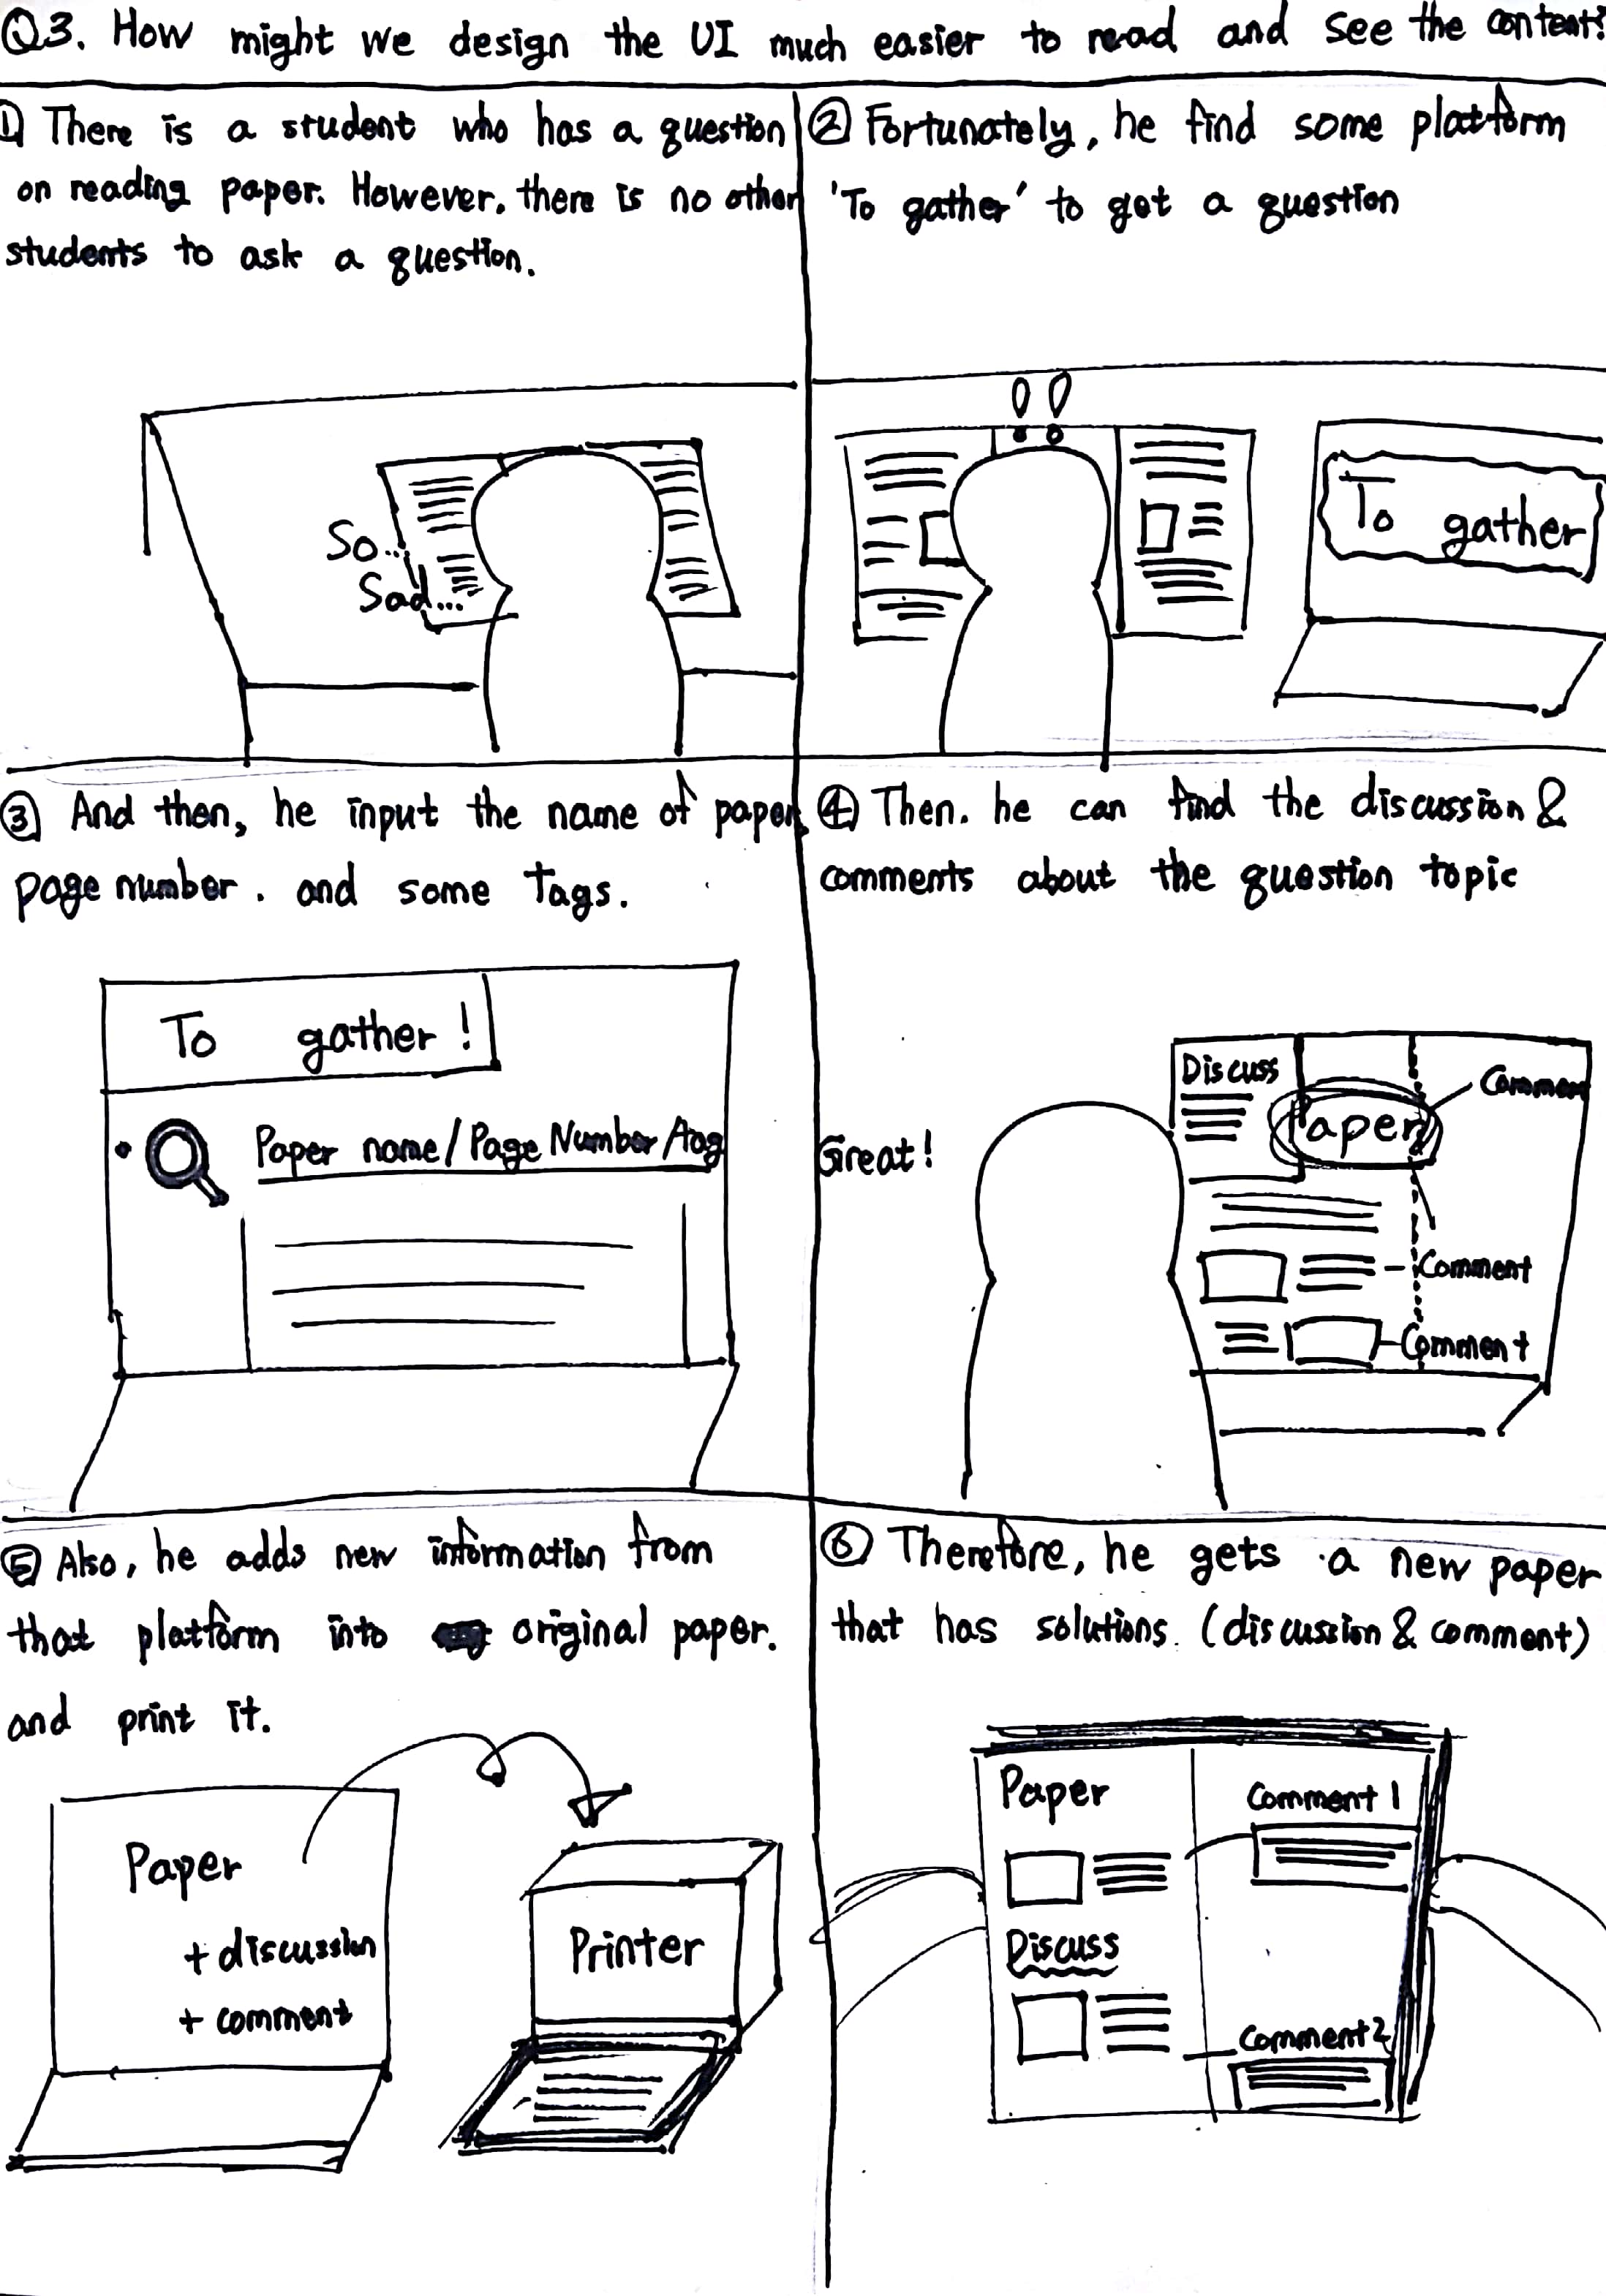 Q3. How might we design the UI much easier to read and see the content?
① There is a student who has a question
on reading paper. However, there is no other
students to ask a question.
So...
Sad...
② Fortunately, he find some platform
'To gather' to get a question
!!
To gather
③ And then, he input the name of paper,
page number. and some Tags.
To gather!
Paper name/Page Number/tag
④ Then. he can find the discussion &
comments about the question topic
Great!
Discuss
Paper
Comment
Comment
Comment
⑤ Also, he adds new information from
that platform into original paper.
and print it.
Paper
+ discussion
+ comment
Printer
⑥ Therefore, he gets a new paper
that has solutions. (discussion & comment)
Paper
Comment 1
Discuss
Comment 2